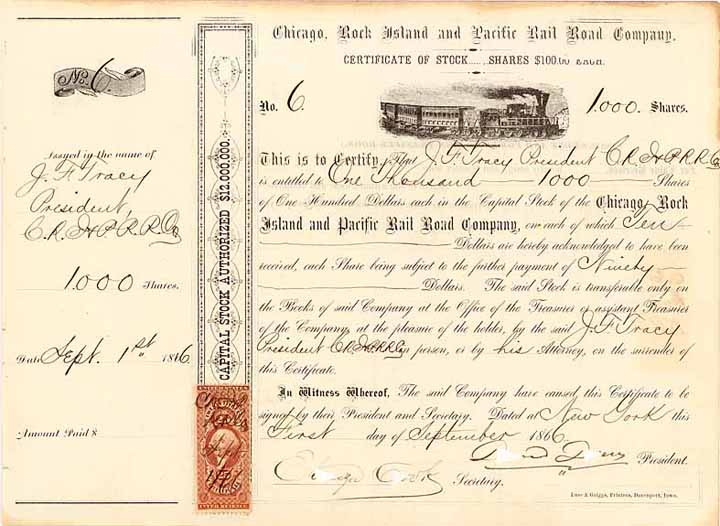 No. 6.
Issued in the name of
J. F. Tracy
President,
C. R. I & P. R. R. Co
1000 Shares.
Date Sept. 1st 1866.
Amount Paid $
CAPITAL STOCK AUTHORIZED $12,000,000.
Chicago, Rock Island and Pacific Rail Road Company.
CERTIFICATE OF STOCK...... SHARES $100.00 EACH.
No. 6. 1000 Shares.
This is to Certify, That J. F. Tracy President C. R. I & P. R. R. Co
is entitled to One Thousand 1000 Shares
of One Hundred Dollars each in the Capital Stock of the Chicago, Rock
Island and Pacific Rail Road Company, on each of which Ten
Dollars are hereby acknowledged to have been
received, each Share being subject to the further payment of Ninety
Dollars. The said Stock is transferable only on
the Books of said Company at the Office of the Treasurer or assistant Treasurer
of the Company, at the pleasure of the holder, by the said J. F. Tracy
President C. R. I & P. R. R. Co in person, or by his Attorney, on the surrender of
this Certificate.
In Witness Whereof, The said Company have caused this Certificate to be
signed by their President and Secretary. Dated at New York this
First day of September 1866
President.
Secretary.
Luse & Griggs, Printers, Davenport, Iowa.